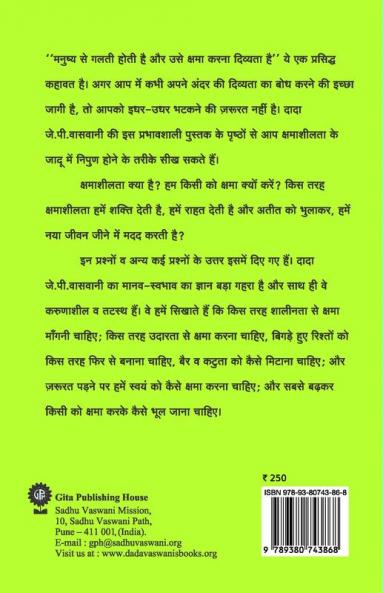 “मनुष्य से गलती होती है और उसे क्षमा करना दिव्यता है” ये एक प्रसिद्ध
कहावत है। अगर आप में कभी अपने अंदर की दिव्यता का बोध करने की इच्छा
जागी है, तो आपको इधर-उधर भटकने की ज़रूरत नहीं है। दादा
जे.पी.वासवानी की इस प्रभावशाली पुस्तक के पृष्ठों से आप क्षमाशीलता के
जादू में निपुण होने के तरीके सीख सकते हैं।
क्षमाशीलता क्या है? हम किसी को क्षमा क्यों करें? किस तरह
क्षमाशीलता हमें शक्ति देती है, हमें राहत देती है और अतीत को भुलाकर, हमें
नया जीवन जीने में मदद करती है?
इन प्रश्नों व अन्य कई प्रश्नों के उत्तर इसमें दिए गए हैं। दादा
जे.पी.वासवानी का मानव-स्वभाव का ज्ञान बड़ा गहरा है और साथ ही वे
करुणाशील व तटस्थ हैं। वे हमें सिखाते हैं कि किस तरह शालीनता से क्षमा
माँगनी चाहिए; किस तरह उदारता से क्षमा करना चाहिए, बिगड़े हुए रिश्तों को
किस तरह फिर से बनाना चाहिए, बैर व कटुता को कैसे मिटाना चाहिए; और
ज़रूरत पड़ने पर हमें स्वयं को कैसे क्षमा करना चाहिए; और सबसे बढ़कर
किसी को क्षमा करके कैसे भूल जाना चाहिए।
₹ 250
ISBN 978-93-80743-86-8
9 789380 743868
GPH
Gita Publishing House
Sadhu Vaswani Mission,
10, Sadhu Vaswani Path,
Pune – 411 001, (India).
E-mail : gph@sadhuvaswani.org
Visit us at : www.dadavaswanisbooks.org